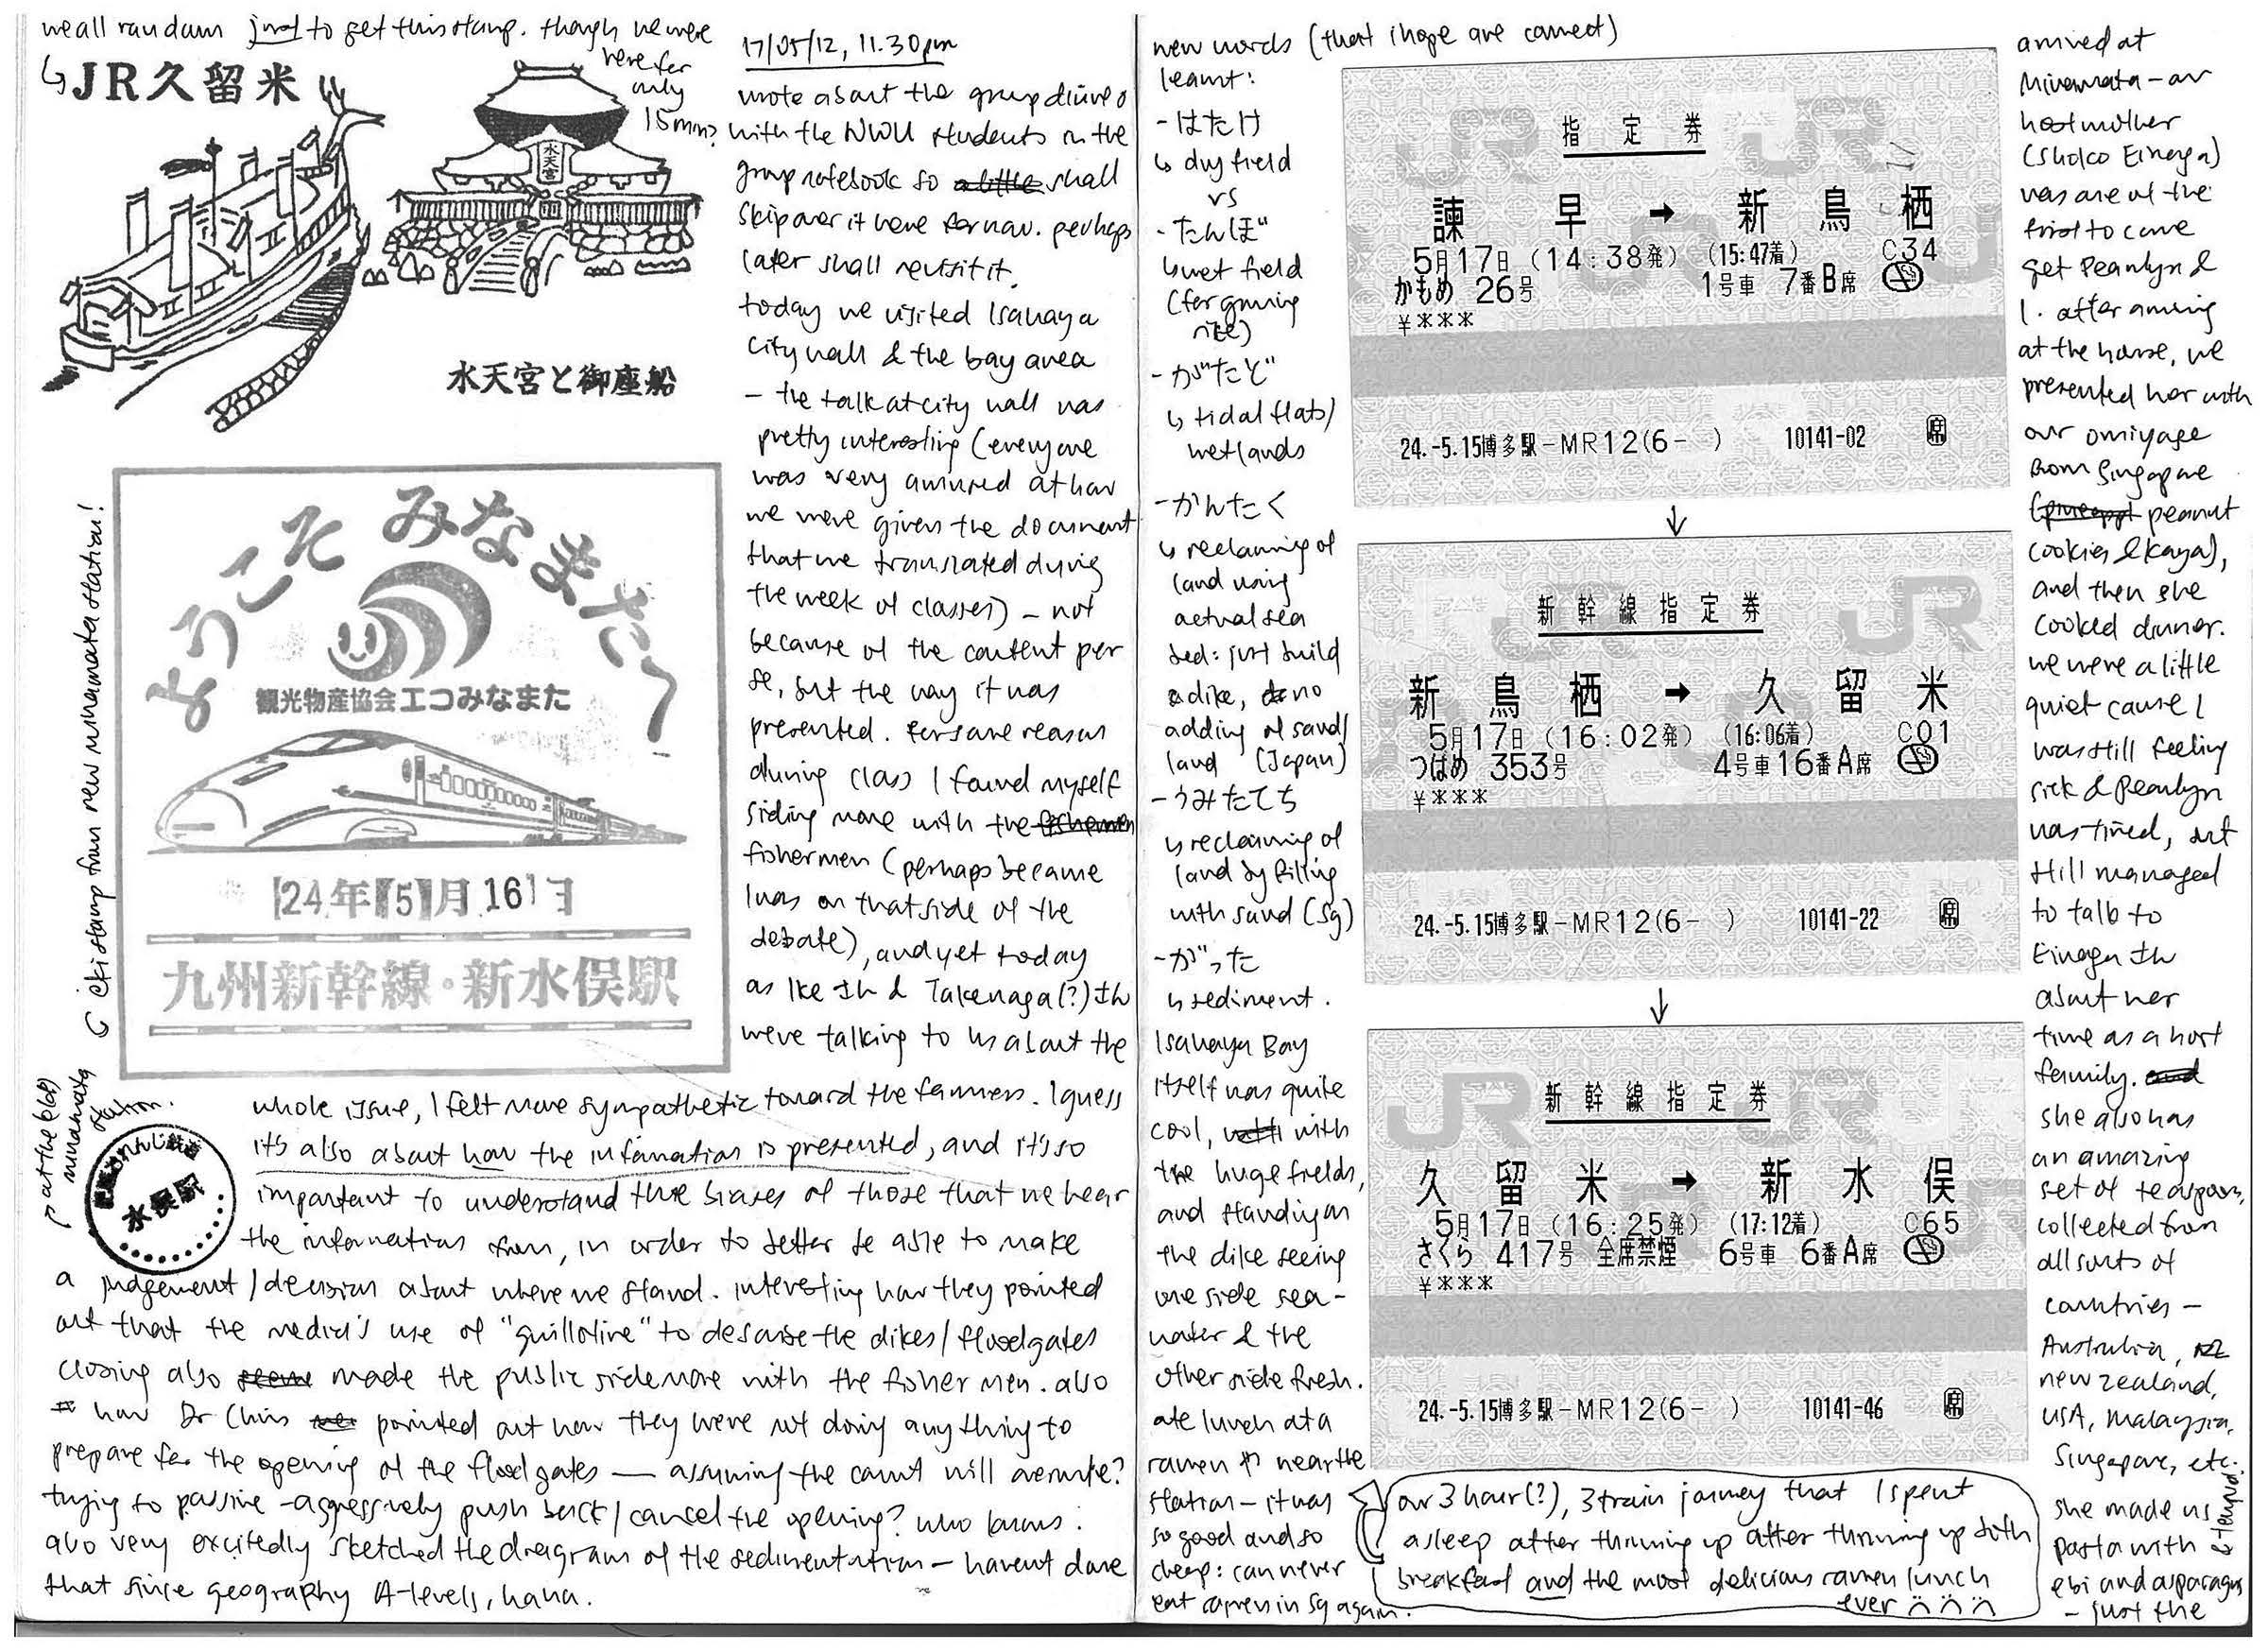 we all ran dam just to get this stamp. though we were
here for
only
15 mins?
↳ JR久留米
水天宮
水天宮と御座船
ekistamp from new minamata station!
ようこそ みなまたへ
観光物産協会エコみなまた
24年 5月 16日
九州新幹線・新水俣駅
↱ at the (old)
minamata
station.
肥薩おれんじ鉄道
水俣駅
17/05/12, 11.30pm
wrote about the group dinner
with the NWU students in the
group notebook so a little shall
skip over it here for now. perhaps
later shall revisit it.
today we visited Isahaya
city hall & the bay area
- the talk at city hall was
pretty interesting (everyone
was very amused at how
we were given the document
that we translated during
the week of classes) - not
because of the content per
se, but the way it was
presented. for some reason
during class I found myself
siding more with the fishermen
fishermen (perhaps because
I was on that side of the
debate), and yet today
as Ike さん & Takenaga(?) さん
were talking to us about the
whole issue, I felt more sympathetic toward the farmers. I guess
it's also about how the information is presented, and it's so
important to understand the biases of those that we hear
the information from, in order to better be able to make
a judgement/decision about where we stand. interesting how they pointed
out that the media's use of "guillotine" to describe the dikes/floodgates
closing also made the public side more with the fishermen. also
how Dr Chris pointed out how they were not doing anything to
prepare for the opening of the floodgates — assuming the court will overrule?
trying to passive-aggressively push back/cancel the opening? who knows.
also very excitedly sketched the diagram of the sedimentation - havent done
that since geography A-levels, haha.
new words (that i hope are correct)
learnt:
- はたけ
↳ dry field
vs
- たんぼ
↳ wet field
(for growing
rice)
- がたど
↳ tidal flats/
wetlands
- かんたく
↳ reclaiming of
land using
actual sea
bed: just build
a dike, no
adding of sand/
land (Japan)
- うみたてち
↳ reclaiming of
land by filling
with sand (Sg)
- がった
↳ sediment.
Isahaya Bay
itself was quite
cool, with
the huge fields,
and standing on
the dike seeing
one side sea-
water & the
other side fresh.
ate lunch at a
ramen や near the
station - it was
so good and so
cheap: can never
eat ramen in Sg again.
指定券
諫早 → 新鳥栖
5月17日 (14:38発) (15:47着) C34
かもめ 26号 1号車 7番B席
¥***
24.-5.15博多駅-MR12(6- ) 10141-02 席
↓
新幹線指定券
新鳥栖 → 久留米
5月17日 (16:02発) (16:06着) C01
つばめ 353号 4号車16番A席
¥***
24.-5.15博多駅-MR12(6- ) 10141-22 席
↓
新幹線指定券
久留米 → 新水俣
5月17日 (16:25発) (17:12着) C65
さくら 417号 全席禁煙 6号車 6番A席
¥***
24.-5.15博多駅-MR12(6- ) 10141-46 席
our 3 hour(?), 3 train journey that I spent
asleep after throwing up after throwing up both
breakfast and the most delicious ramen lunch
ever
arrived at
Minamata - our
host mother
(Shoko Einaga)
was one of the
first to come
get Pearlyn &
I. after arriving
at the house, we
presented her with
our omiyage
from Singapore
(peanut
cookies & kaya),
and then she
cooked dinner.
we were a little
quiet cause I
was still feeling
sick & Pearlyn
was tired, but
still managed
to talk to
Einaga さん
about her
time as a host
family. and
she also has
an amazing
set of teaspoons,
collected from
all sorts of
countries -
Australia, NZ
new zealand,
USA, Malaysia,
Singapore, etc.
she made us
pasta with
ebi and asparagus
- just the